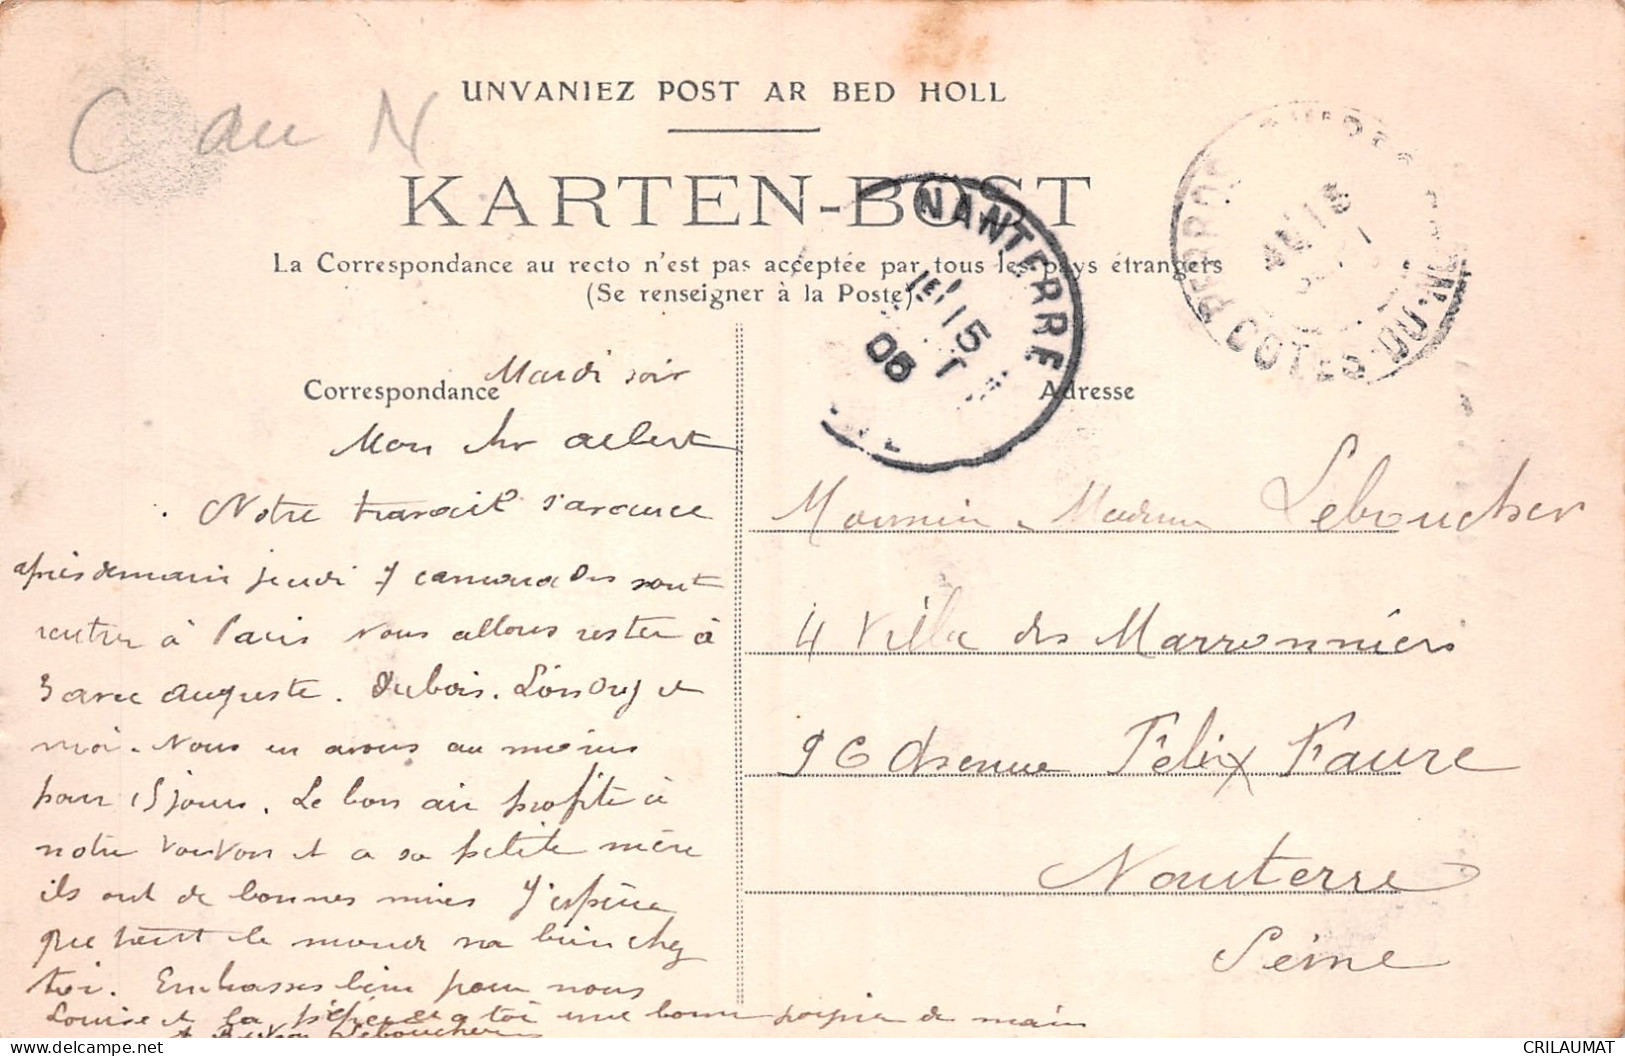 C au N
UNVANIEZ POST AR BED HOLL
KARTEN-BOST
La Correspondance au recto n'est pas acceptée par tous les pays étrangers
(Se renseigner à la Poste)
NANTERRE
15
05
PERROS
COTES-DU-N
Correspondance
Adresse
Mardi soir
Mon cher albert
Notre travail s'avance
après demain jeudi 7 camarades vont
rentrer à Paris nous allons rester à
3 avec auguste. Dubois. et
moi. Nous en avons au moins
pour 15 jours. Le bon air profite à
notre et a sa petite mère
ils ont de bonnes mines J'espère
que tout le monde va bien chez
toi. Embrasses bien pour nous
Louise et la à toi une bonne poignée de main
Leboucher
Monsieur Madame Leboucher
4 Villa des Marronniers
96 Avenue Félix Faure
Nanterre
Seine
CRILAUMAT